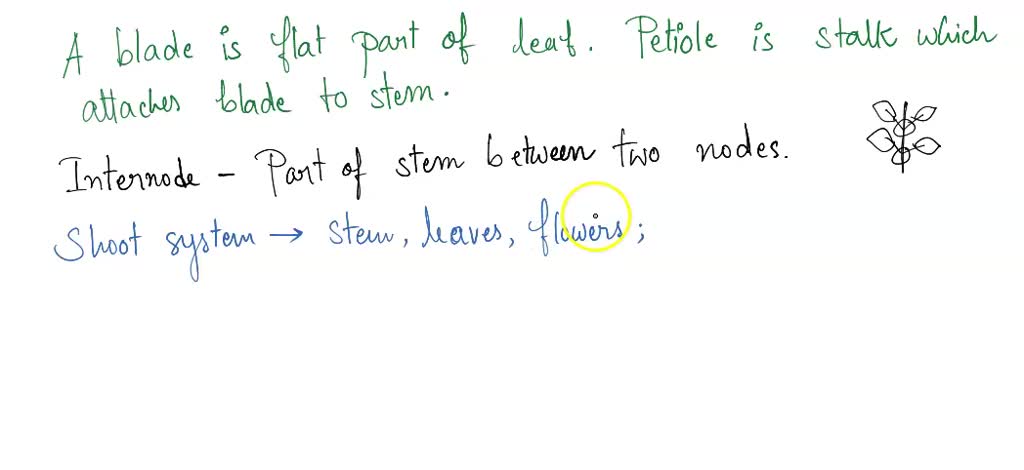 A blade is flat part of leaf. Petiole is stalk which
attaches blade to stem.
Internode - Part of stem between two nodes.
Shoot system → stem, leaves, flowers;